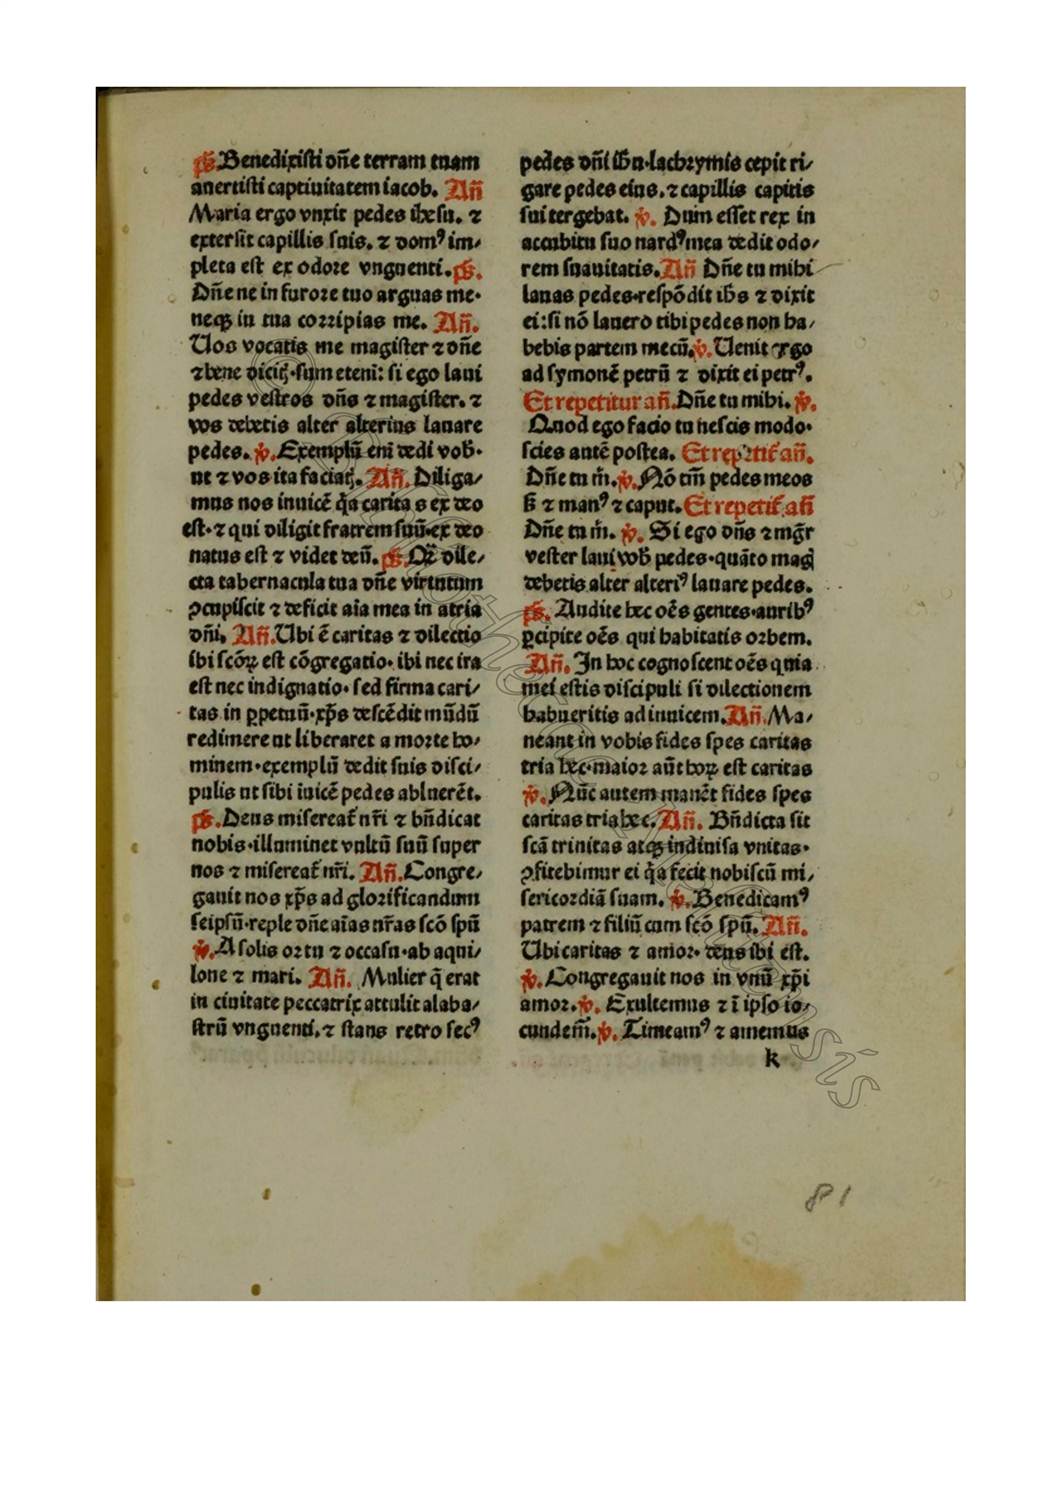 p̄s. Benedixisti dn̄e terram tuam
auertisti captiuitatem iacob. Añ
Maria ergo vnxit pedes ihesu. ⁊
extersit capillis suis. ⁊ domꝰ im⸗
pleta est ex odore vnguenti. p̄s.
Dn̄e ne in furore tuo arguas me·
neqꝫ in tua corripias me. Añ.
Uos vocatis me magister ⁊ dn̄e
⁊ bene dicitꝭ·sum etenī: si ego laui
pedes vestros dn̄s ⁊ magister. ⁊
vos debetis alter alterius lauare
pedes. ℣. Exemplū enī dedi vob̄·
ut ⁊ vos ita faciatꝭ. Añ. Diliga⸗
mus nos inuicē q̄a caritas ex deo
est·⁊ qui diligit fratrem suū·ex deo
natus est ⁊ videt deū. p̄s. Qꝫ dile⸗
cta tabernacula tua dn̄e virtutum
ꝯcupiscit ⁊ deficit aīa mea in atria
dn̄i. Añ. Ubi ē caritas ⁊ dilectio
ibi scōꝝ est cōgregatio· ibi nec ira
est nec indignatio· sed firma cari⸗
tas in ꝑpetuū·xp̄s descēdit mūdū
redimere ut liberaret a morte ho⸗
minem·exemplū dedit suis disci⸗
pulis ut sibi īuicē pedes abluerēt.
p̄s. Deus misereat᷑ nr̄i ⁊ bn̄dicat
nobis·illuminet vultū suū super
nos ⁊ misereat᷑ nr̄i. Añ. Congre⸗
gauit nos xp̄s ad glorificandum
seipsū·reple dn̄e aīas nr̄as scō spū
℣. A solis ortu ⁊ occasu·ab aqui⸗
lone ⁊ mari. Añ. Mulier q̄ erat
in ciuitate peccatrix attulit alaba⸗
strū vnguenti. ⁊ stans retro secꝰ
pedes dn̄i ih̄u·lachrymis cepit ri⸗
gare pedes eius. ⁊ capillis capitis
sui tergebat. ℣. Dum esset rex in
accubitu suo nardꝰ mea dedit odo⸗
rem suauitatis. Añ Dn̄e tu mihi
lauas pedes·respōdit ih̄s ⁊ dixit
ei: si nō lauero tibi pedes non ha⸗
bebis partem mecū. ℣. Uenit ergo
ad symonē petrū ⁊ dixit ei petrꝰ.
Et repetitur añ. Dn̄e tu mihi. ℣.
Quod ego facio tu nescis modo·
scies autē postea. Et repetit᷑ añ.
Dn̄e tu m̄. ℣. Nō tm̄ pedes meos
s̄ ⁊ manꝰ ⁊ caput. Et repetit᷑ añ
Dn̄e tu m̄. ℣. Si ego dn̄s ⁊ mgr̄
vester laui vob̄ pedes·quāto magꝭ
debetis alter alteriꝰ lauare pedes.
p̄s. Audite hec oēs gentes·auribꝰ
ꝑcipite oēs qui habitatis orbem.
Añ. In hoc cognoscent oēs quia
mei estis discipuli si dilectionem
habueritis ad inuicem. Añ. Ma⸗
neant in vobis fides spes caritas
tria hec·maior aūt hoꝝ est caritas
℣. Nūc autem manēt fides spes
caritas tria hec. Añ. Bn̄dicta sit
scā trinitas atqꝫ indiuisa vnitas·
ꝯfitebimur ei q̄a fecit nobiscū mi⸗
sericordiā suam. ℣. Benedicamꝰ
patrem ⁊ filiū cum scō spū. Añ.
Ubi caritas ⁊ amor· deus ibi est.
℣. Congregauit nos in vnū xp̄i
amor. ℣. Exultemus ⁊ ī ipso io⸗
cundem̄. ℣. Timeamꝰ ⁊ amemus
k
81